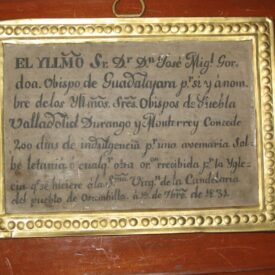 EL YLLMO Sr. Dr. Dn. José Migl. Gor-
doa. Obispo de Guadalajara pr. si y á nom-
bre de los Yllmos. Sres. Obispos de Puebla
Valladolid Durango y Monterrey Concede
200 dias de indulgencia pr. una avemaria Sal-
be letania ó cualqr. otra or.on recibida pr. la Ygle-
cia qe. se hiciere á la Sma. Virgn. de la Candelaria
del pueblo de 1831.